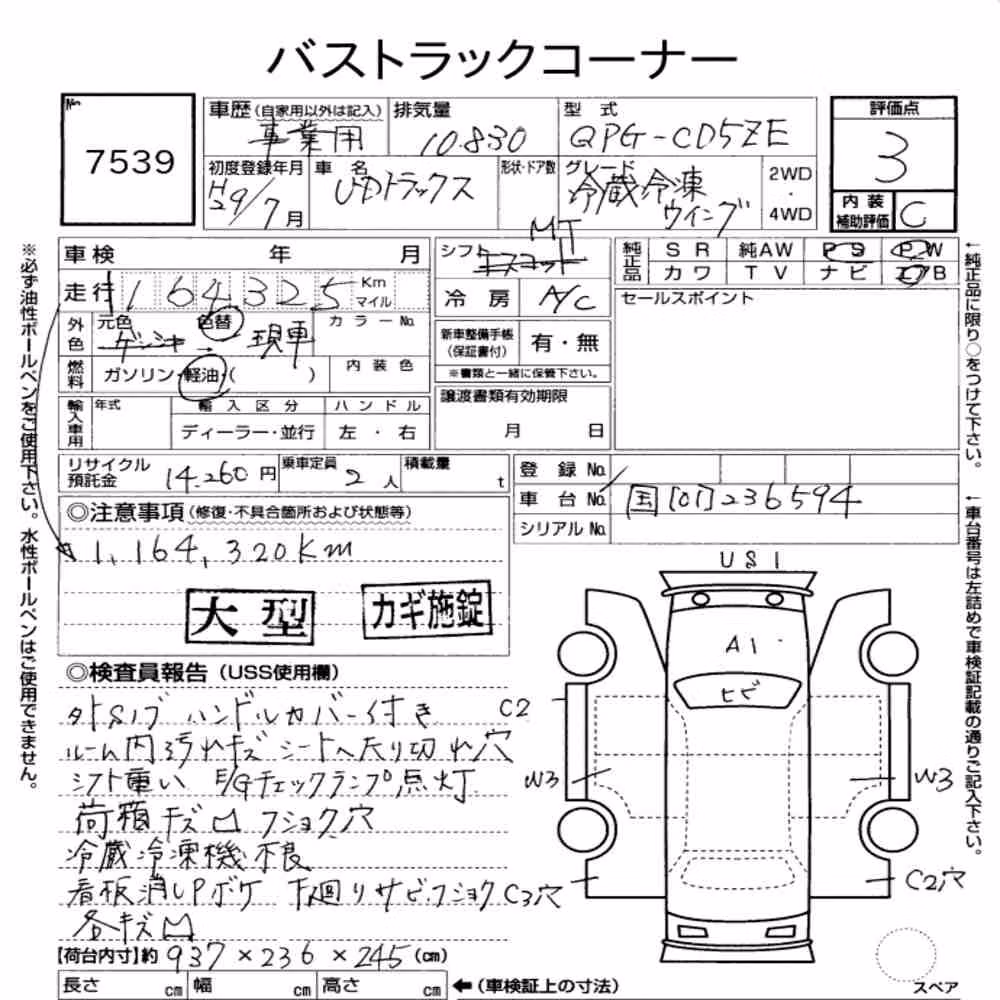 バストラックコーナー
No.
7539
車歴(自家用以外は記入)
事業用
排気量
10.830
型式
QPG-CD5ZE
評価点
3
初度登録年月
H29/7月
車名
UDトラックス
形状・ドア数
グレード
冷蔵冷凍
ウイング
2WD
・
4WD
内装
補助評価
C
※必ず油性ボールペンをご使用下さい。水性ボールペンはご使用できません。
車検 年 月
走行 1 164325 Km
マイル
外色
元色
色替
現車
カラーNo.
燃料
ガソリン・軽油・( )
内装色
輸入車用
年式
輸入区分
ディーラー・並行
ハンドル
左・右
シフト
MT
冷房
A/C
新車整備手帳
(保証書付)
有・無
※書類と一緒に保管下さい。
譲渡書類有効期限
月 日
純正品
SR 純AW PS PW
カワ TV ナビ エアB
セールスポイント
←純正品に限り○をつけて下さい。
リサイクル
預託金
14.260円
乗車定員
2人
積載量
t
登録No.
車台No.
国[01]236594
シリアルNo.
←車台番号は左詰めで車検証記載の通りご記入下さい。
◎注意事項(修復・不具合箇所および状態等)
1,164,320Km
大型
カギ施錠
◎検査員報告(USS使用欄)
外SIブ ハンドルカバー付き
ルーム内汚れキズ シートへたり切れ穴
シフト重い E/Gチェックランプ点灯
荷箱キズ凹フショク穴
冷蔵冷凍機不良
看板消しPボケ 下廻りサビフショク
各キズ凹
【荷台内寸】約 937×236×245(cm)
長さ cm 幅 cm 高さ cm
←(車検証上の寸法)
US1
A1
ヒビ
C2
W3
W3
C3穴
C2穴
スペア